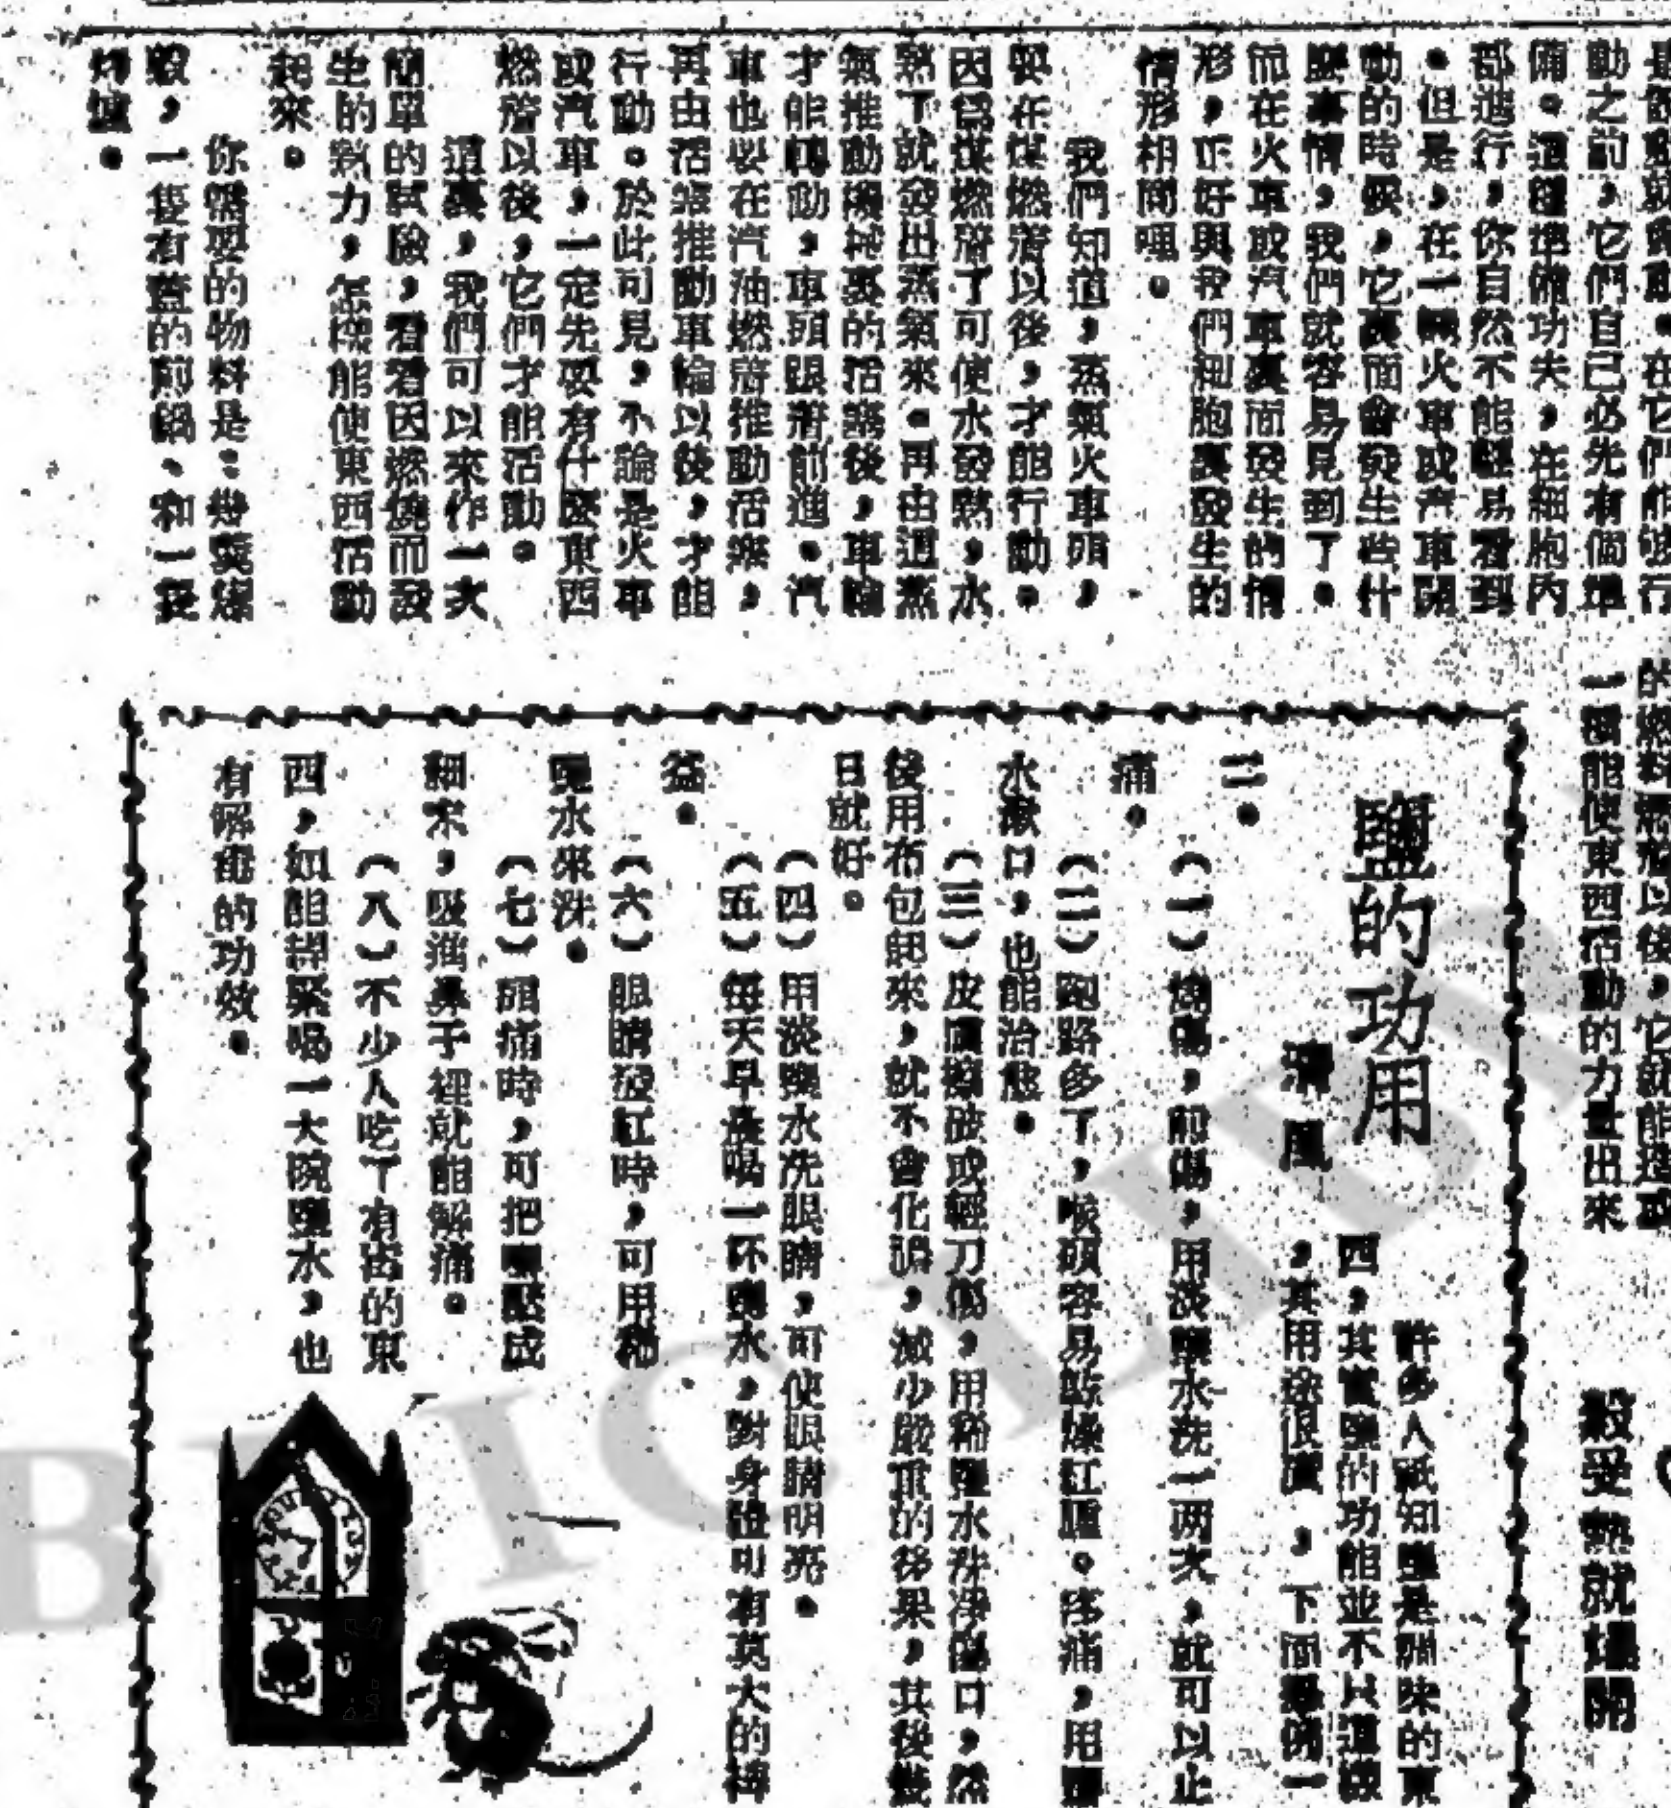 動之前，它們自己必先有個準
備。這種準備功夫，在細胞內
都進行，你自然不能輕易看到
。但是，在一輛火車或汽車開
動的時候，它裏面會發生些什
麼事情，我們就容易見到了。
而在火車或汽車裏面發生的情
形，正好與我們細胞裏發生的
情形相同哩。
我們知道，蒸氣火車頭，
要在煤燃着以後，才能行動。
因爲煤燃着了可使水發熱，水
熱了就發出蒸氣來。再由這蒸
氣推動機械裏的活塞後，車輪
才能轉動，車頭跟着前進。汽
車也要在汽油燃着推動活塞，
再由活塞推動車輪以後，才能
行動。於此可見，不論是火車
或汽車，一定先要有什麼東西
燃着以後，它們才能活動。
這裏，我們可以來作一次
簡單的試驗，看看因燃燒而發
生的熱力，怎樣能使東西活動
起來。
你需要的物料是：幾顆爆
穀，一隻有蓋的煎鍋、和一隻
火爐。
的燃料燃燒以後，它就能造成
一種能使東西活動的力量出來
穀受熱就爆開
鹽的功用
清風
許多人祇知鹽是調味的東
西，其實鹽的功能並不只這樣
，其用途很廣，下面舉例一
二。
（一）燒傷，煎傷，用淡鹽水洗一兩次，就可以止
痛。
（二）跑路多了，喉頭容易乾燥紅腫。疼痛，用鹽
水漱口，也能治癒。
（三）皮膚擦破或輕刀傷，用稀鹽水洗淨傷口，然
後用布包起來，就不會化膿，減少嚴重的後果，其後幾
日就好。
（四）用淡鹽水洗眼睛，可使眼睛明亮。
（五）每天早晨喝一杯鹽水，對身體可有莫大的裨
益。
（六）眼睛發紅時，可用稀
鹽水來洗。
（七）頭痛時，可把鹽壓成
細末，吸進鼻子裡就能解痛。
（八）不少人吃了有毒的東
西，如能趕緊喝一大碗鹽水，也
有解毒的功效。